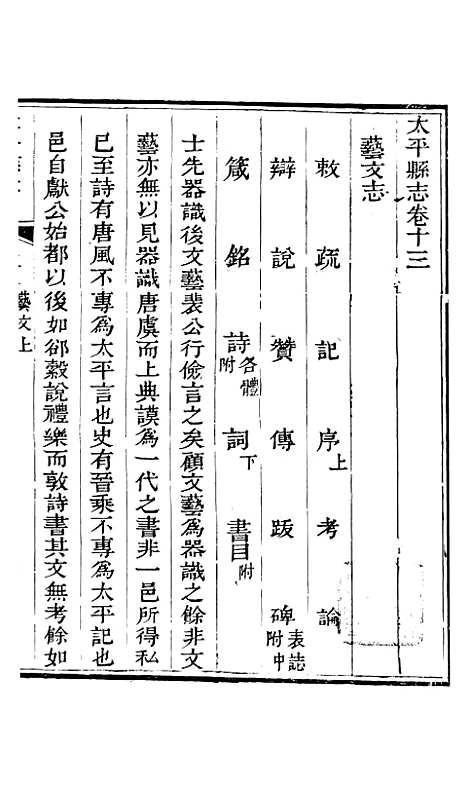 太平縣志卷十三
藝文志
敕 疏 記 序上 考 論
辯 說 贊 傳 跋 碑表誌附中
箴 銘 詩各體附 詞下 書目附
士先器識後文藝裴公行儉言之矣顧文藝為器識之餘非文
藝亦無以見器識唐虞而上典謨為一代之書非一邑所得私
巳至詩有唐風不專為太平言也史有晉乘不專為太平記也
邑自獻公始都以後如郤縠說禮樂而敦詩書其文無考餘如
藝文上